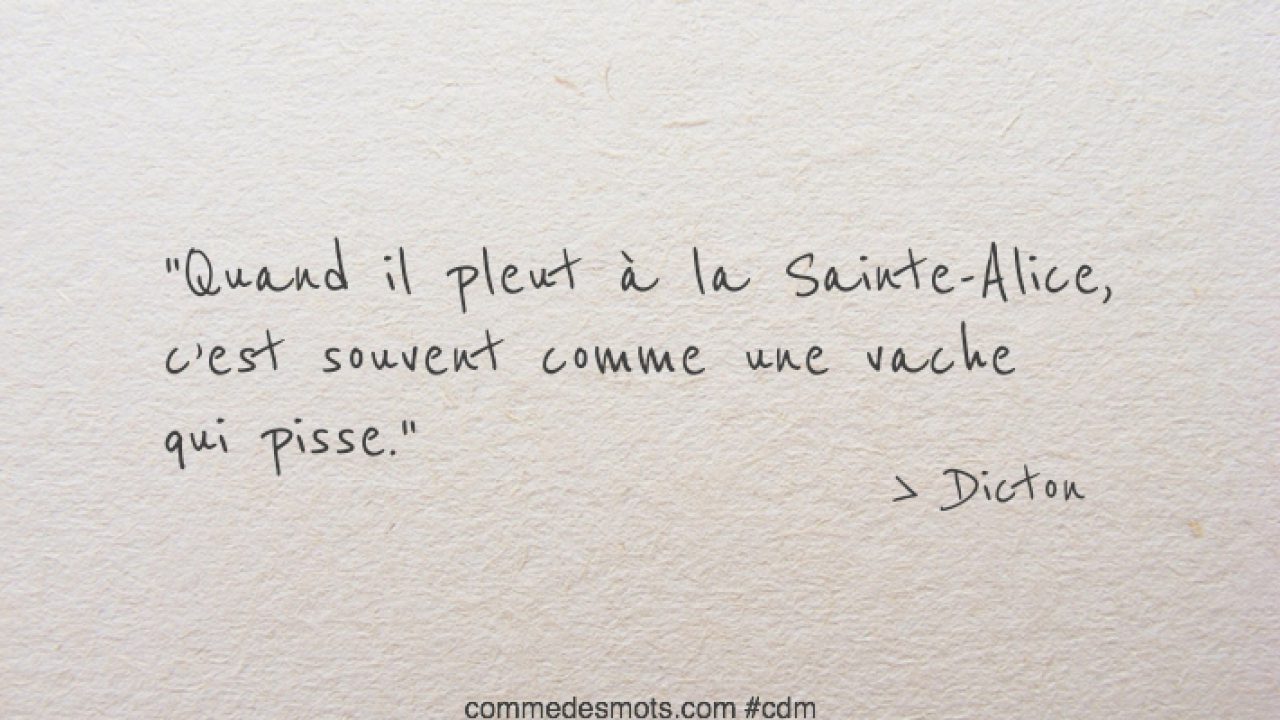 "Quand il pleut à la Sainte-Alice,
c'est souvent comme une vache
qui pisse."
> Dicton
commedesmots.com #cdm